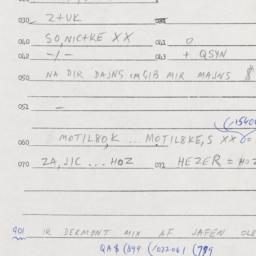 030 Z+UK
040 SO,NIC+KE XX 041 0
042 -/- 043 + QSYN
050 NA DIR DAJNS CMGIB MIR MAJNS $
051 -
(1540
060 MOTIL80,K ... MOTIL8KE,S XX 0=
070 ZA,JIC ... HOZ 071 HEZER = HOZ
901 IR DERMONT MIX AF JAFEN OLE
QA$ (899 (1022061 (799